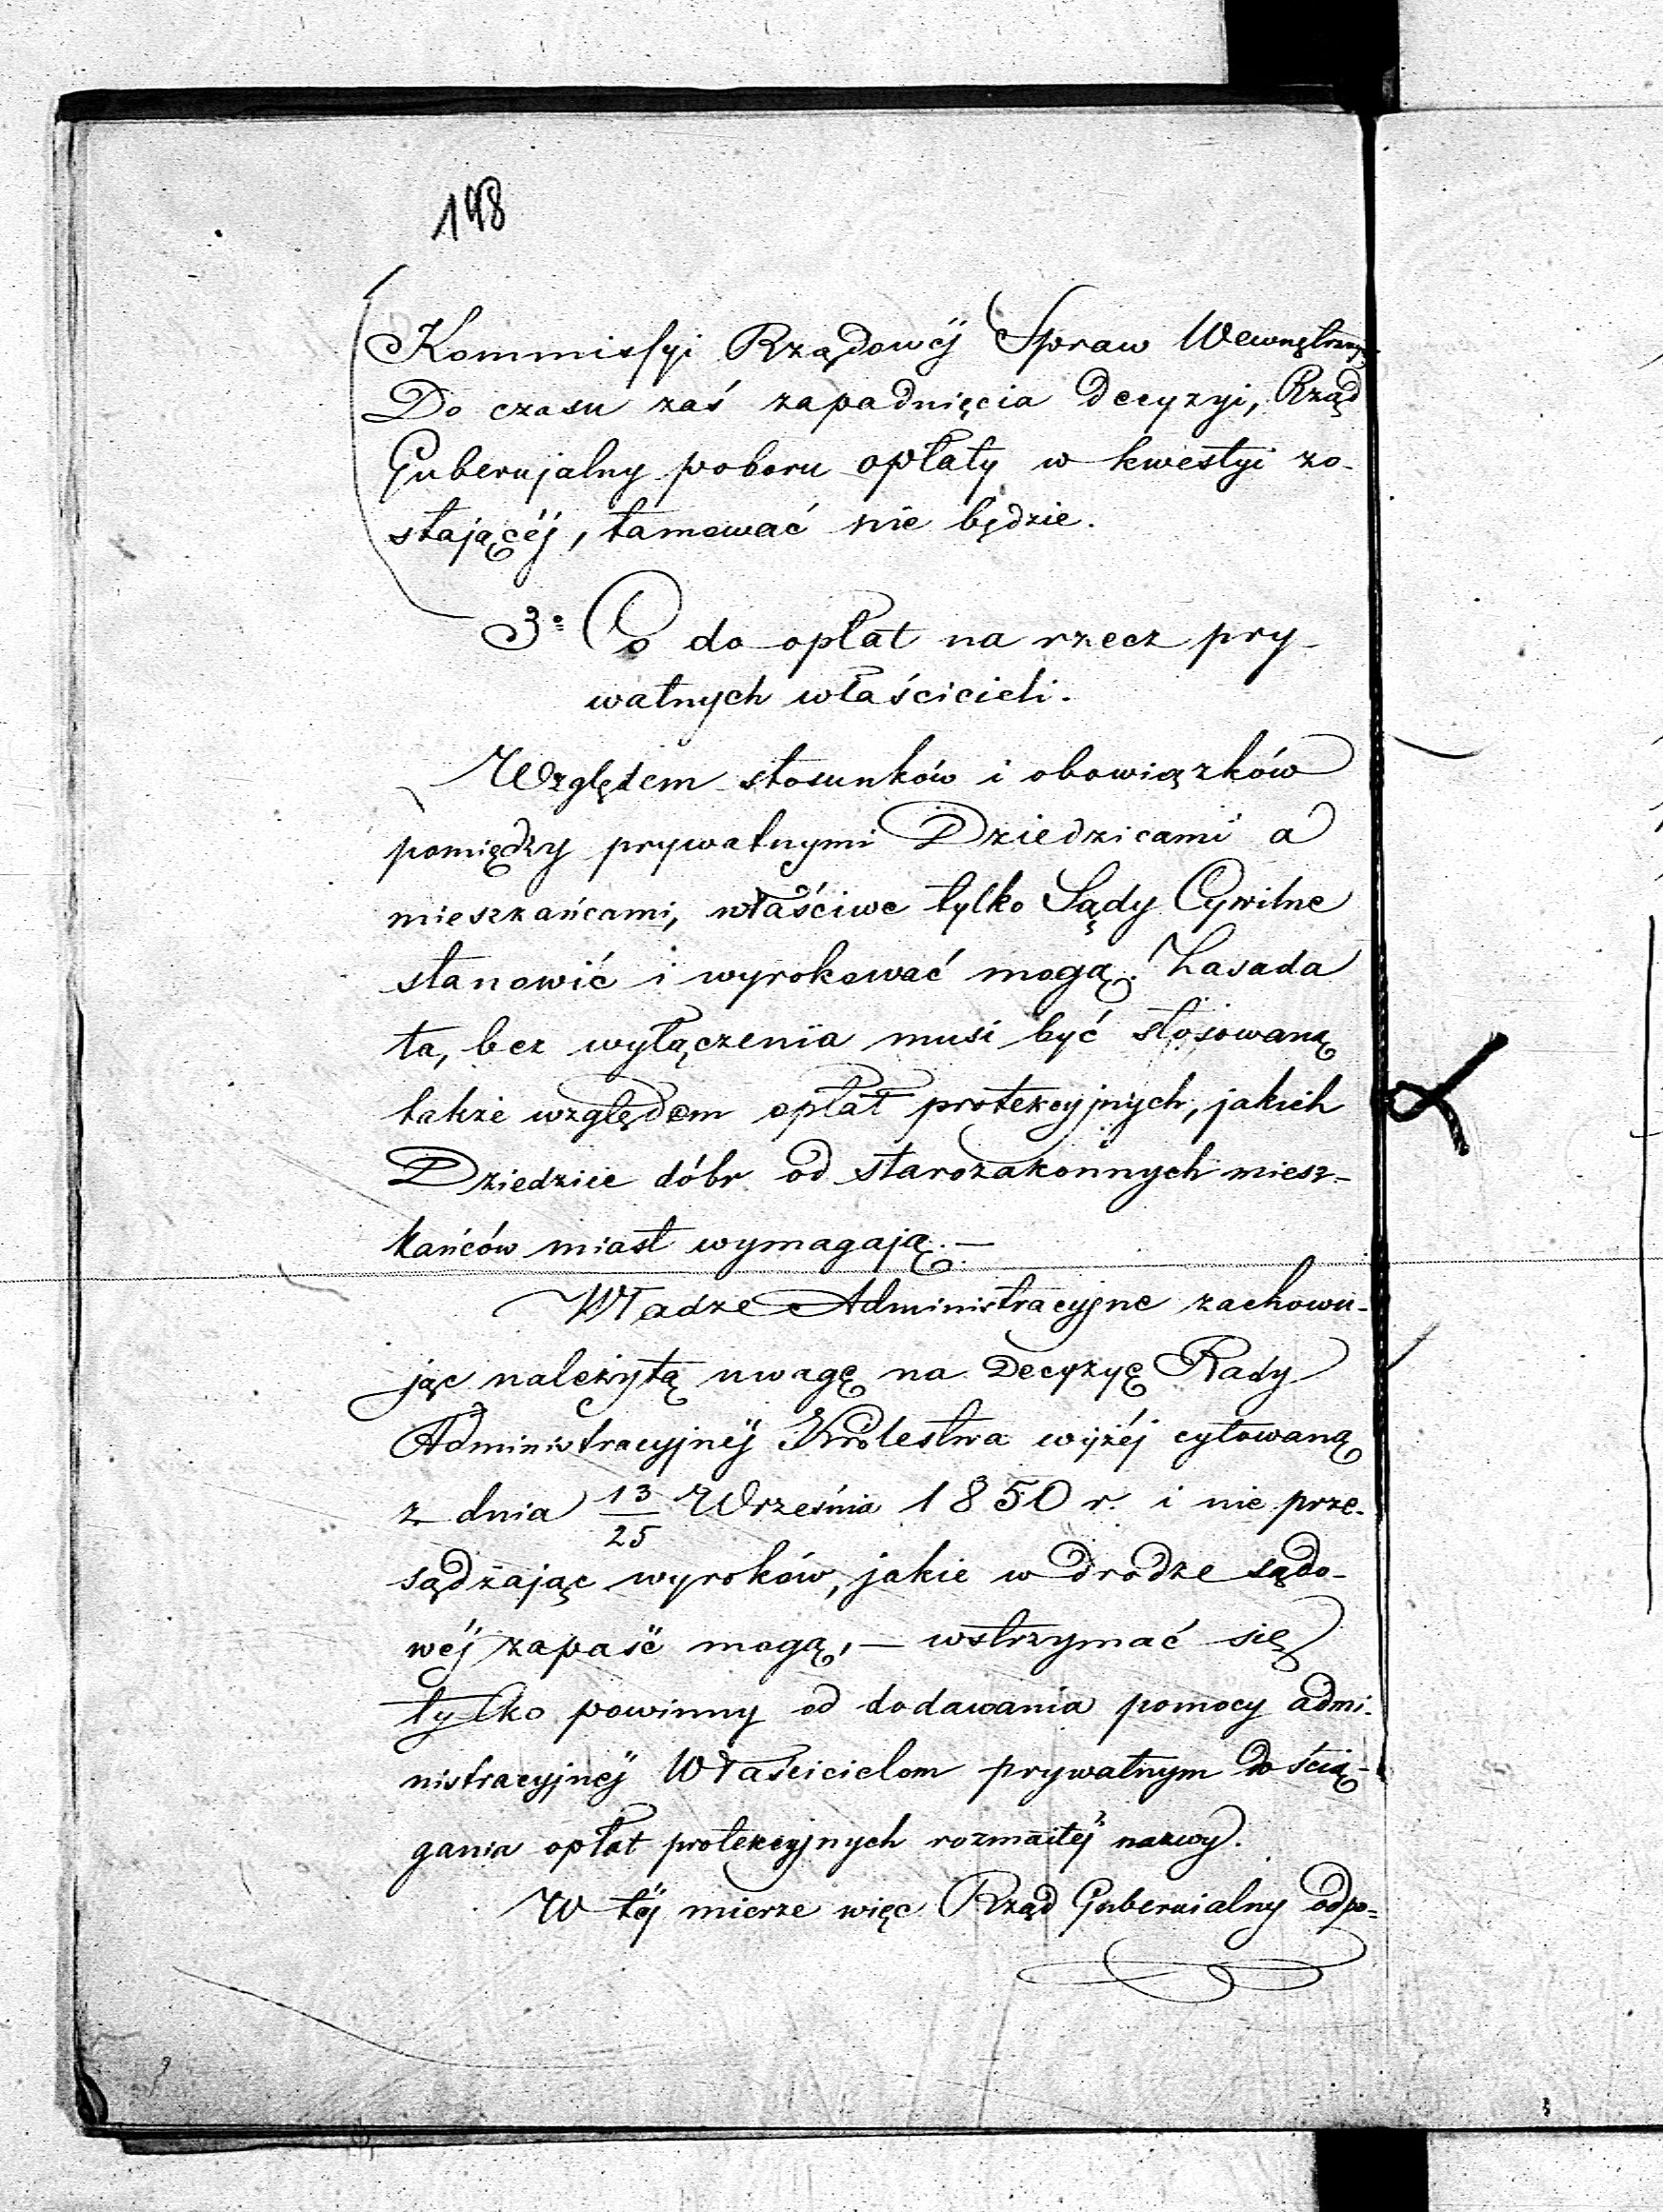 148
Kommissyi Rządowéj Spraw Wewnętrznych.
Do czasu zaś zapadnięcia decyzyi, Rząd
Gubernjalny poboru opłaty w kwestyi zo-
stającéj, tamować nie będzie.
3º Co do opłat na rzecz pry-
watnych właścicieli.
Względem stosunków i obowiązków
pomiędzy prywatnymi Dziedzicami a
mieszkańcami, właściwe tylko Sądy Cywilne
stanowić i wyrokować mogą. Zasada
ta, bez wyłączenia musi być stosowaną
także względem opłat protekcyjnych, jakich
Dziedzice dóbr od starozakonnych miesz-
kańców miast wymagają. —
Władze Administracyjne zachowu-
jąc należytą uwagę na Decyzyę Rady
Administracyjnéj Królestwa wyżéj cytowaną
z dnia 13/25 Września 1850 r. i nie prze-
sądzając wyroków, jakie w drodze sądo-
wéj zapaść mogą, — wstrzymać się
tylko powinny od dodawania pomocy admi-
nistracyjnéj Właścicielom prywatnym do ścią-
gania opłat protekcyjnych rozmaitéj nazwy.
W téj mierze więc Rząd Gubernialny odpo=